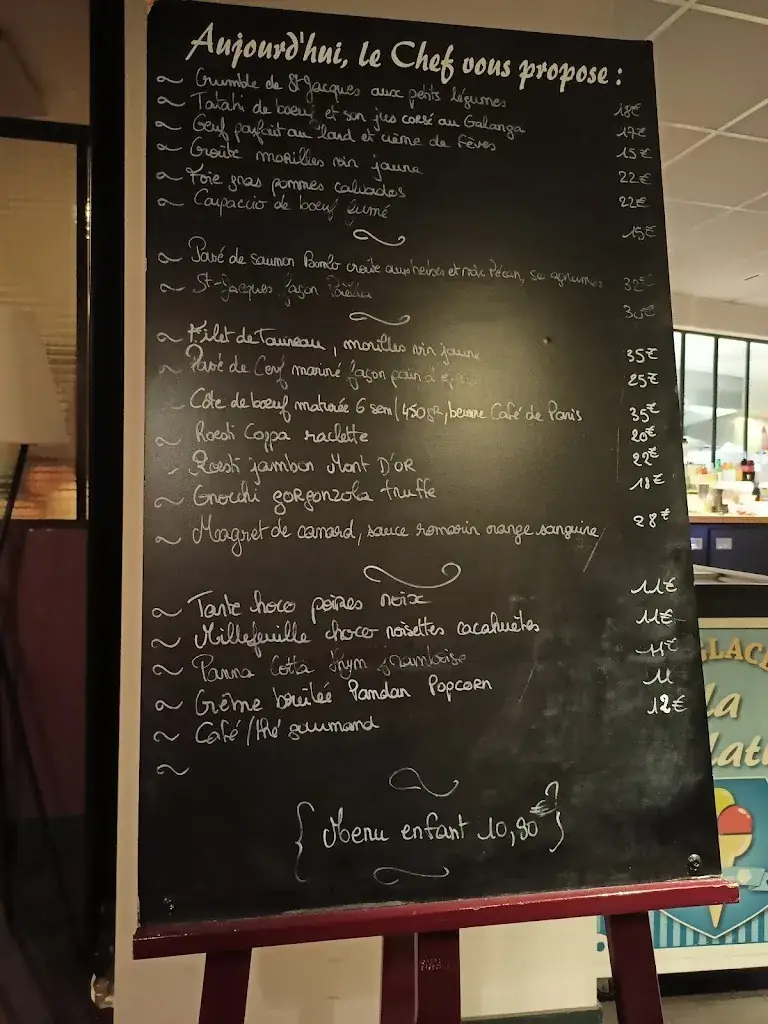 Aujourd'hui, le Chef vous propose :
~ Crumble de St Jacques aux petits légumes 18€
~ Tataki de boeuf et son jus corsé au Galanga 17€
~ Oeuf parfait au lard et crème de Fèves 15€
~ Croûte morilles vin jaune 22€
~ Foie gras pommes calvados 22€
~ Carpaccio de boeuf fumé 15€
~ Pavé de saumon croûte et noix Pécan, agrumes 32€
~ St-Jacques façon 30€
~ Filet de Taureau, morilles vin jaune 35€
~ Pavé de Cerf mariné façon pain d'épices 25€
~ Côte de boeuf maturée 6 sem/450gr, beurre Café de Paris 35€
~ Roesti Coppa raclette 20€
~ Roesti jambon Mont D'OR 22€
~ Gnocchi gorgonzola truffe 18€
~ Magret de canard, sauce romarin orange sanguine 28€
~ Tarte choco poires noix 11€
~ Millefeuille choco noisettes cacahuètes 11€
~ Panna Cotta thym framboise 11€
~ Crème brûlée Pandan Popcorn 11
~ Café/thé gourmand 12€
~
{ Menu enfant 10,80€ }
GLACE
la